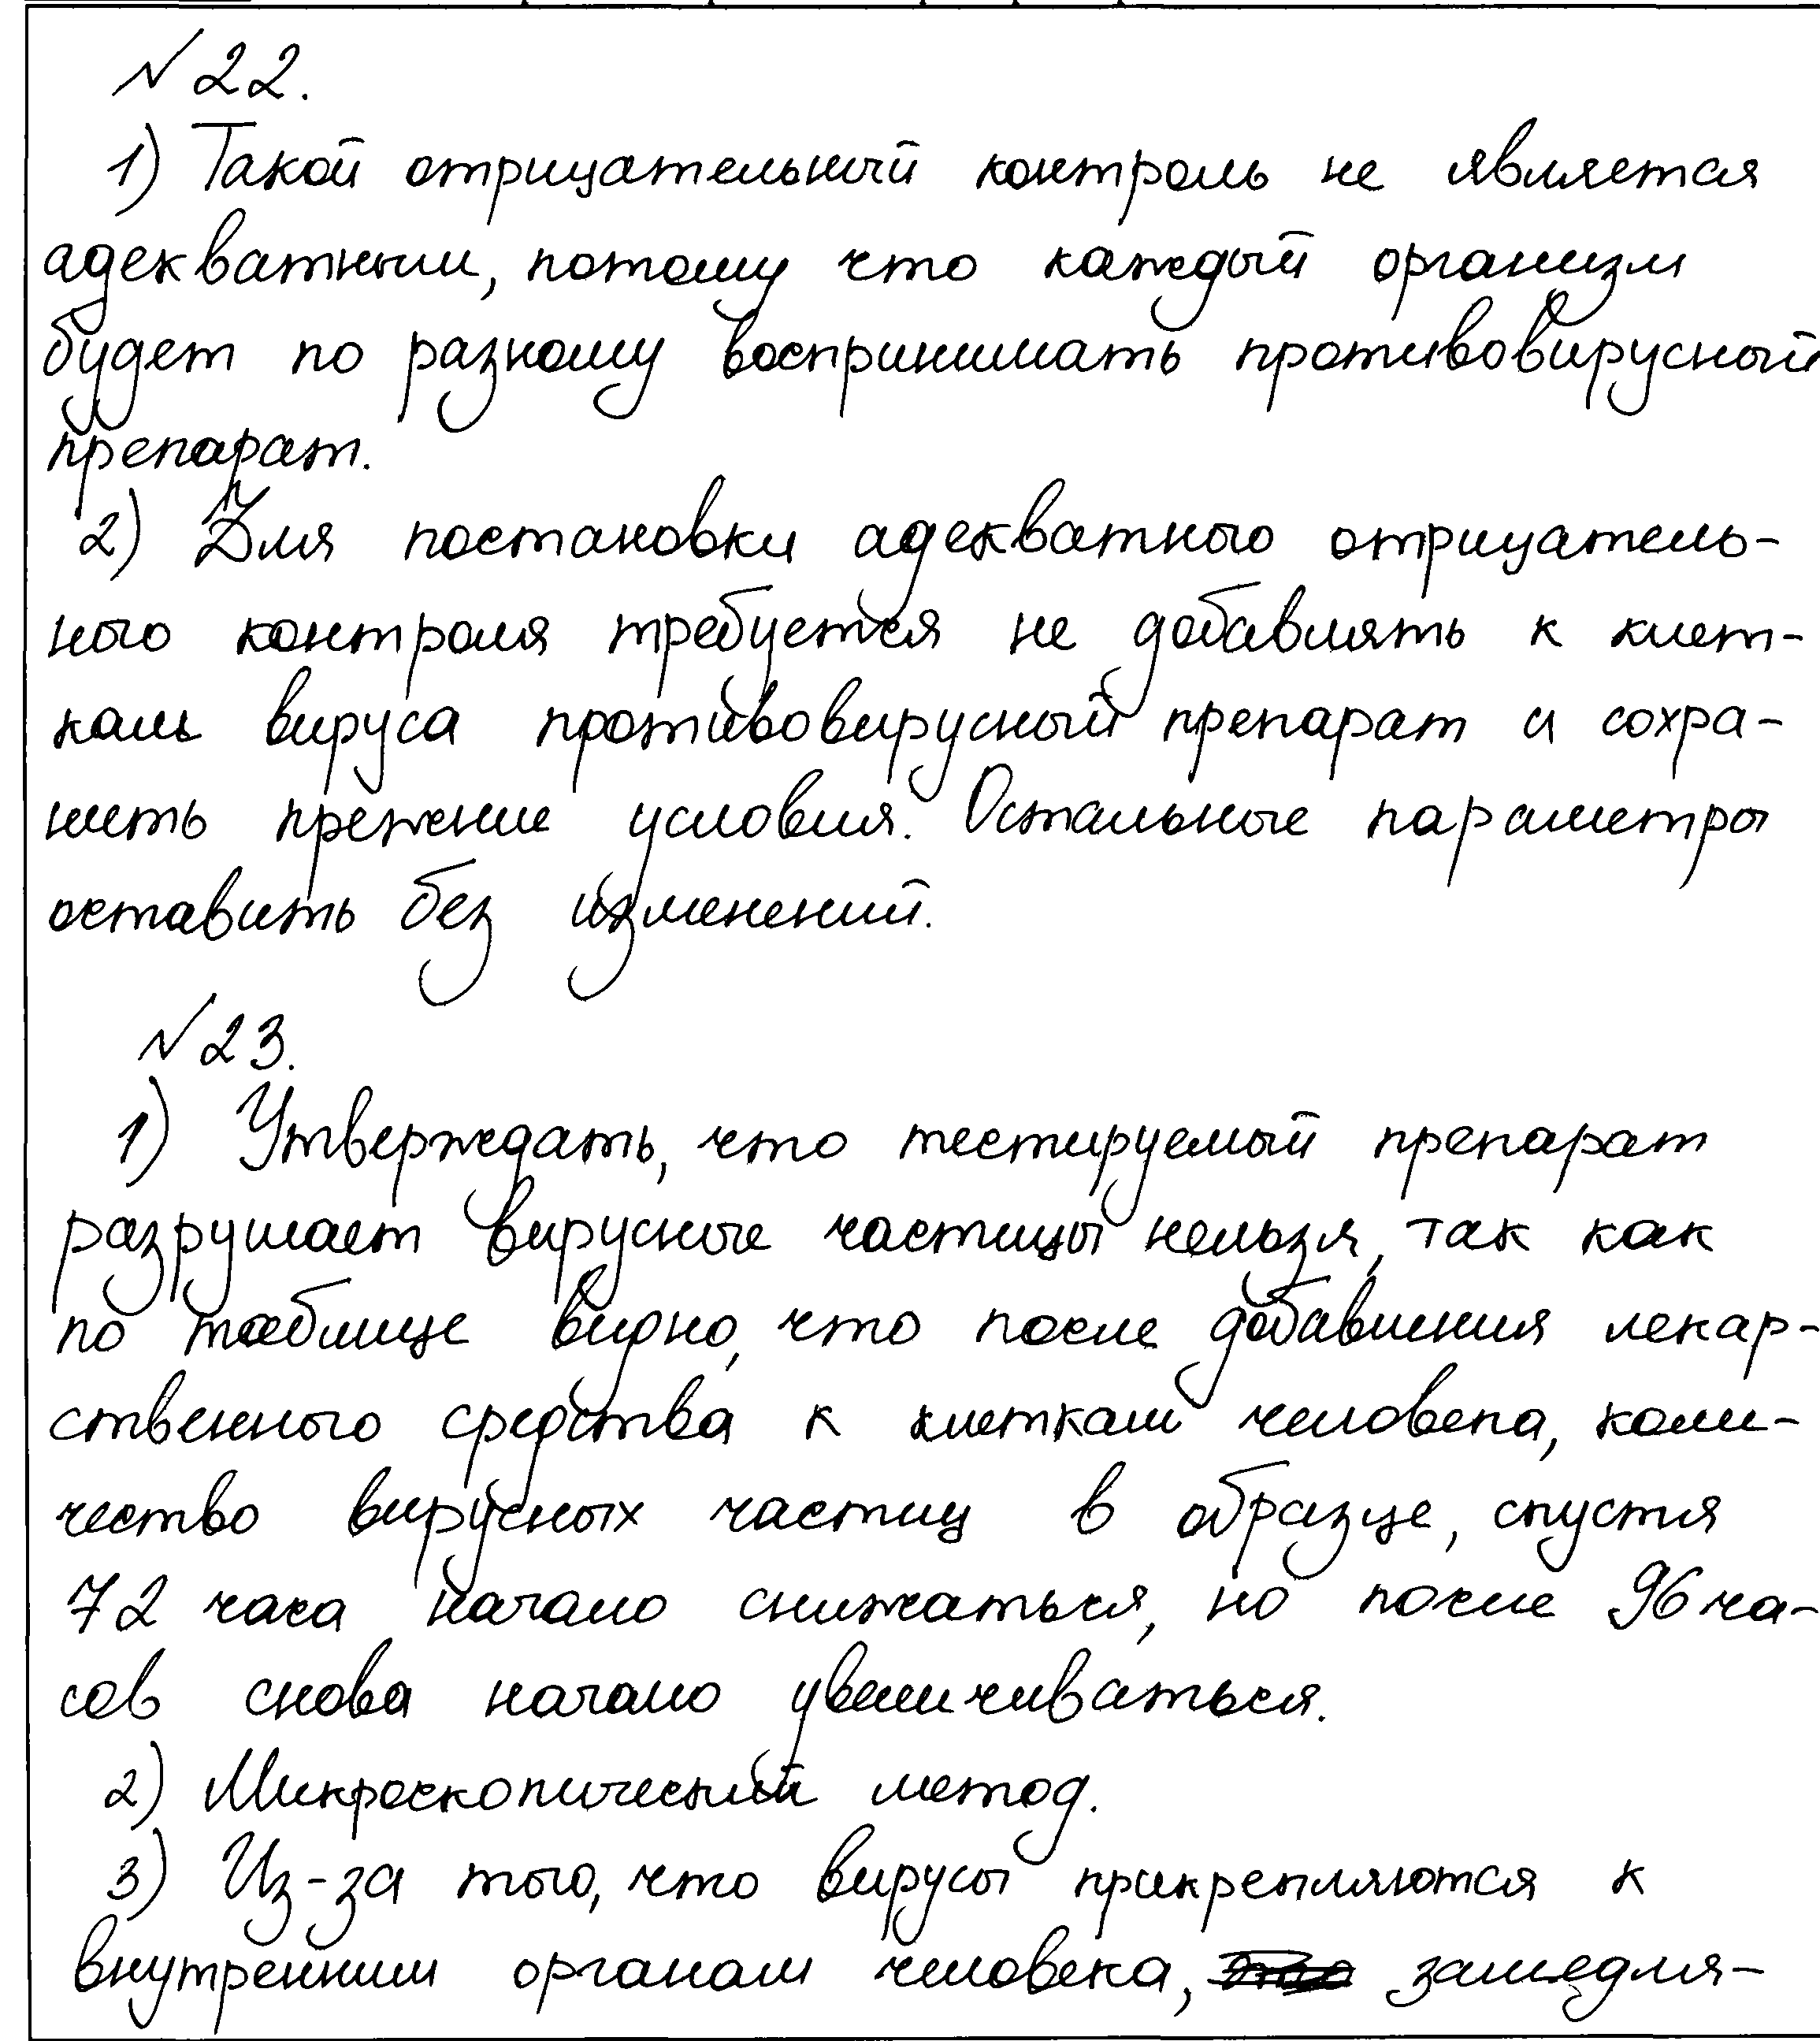 № 22.
1) Такой отрицательный контроль не является
адекватным, потому что каждый организм
будет по разному воспринимать противовирусный
препарат.
2) Для постановки адекватного отрицатель-
ного контроля требуется не добавлять к клет-
кам вируса противовирусный препарат и сохра-
нить прежние условия. Остальные параметры
оставить без изменений.
№ 23.
1) Утверждать, что тестируемый препарат
разрушает вирусные частицы нельзя, так как
по таблице видно, что после добавления лекар-
ственного средства к клеткам человека, коли-
чество вирусных частиц в образце, спустя
72 часа начало снижаться, но после 96 ча-
сов снова начало увеличиваться.
2) Микроскопический метод.
3) Из-за того, что вирусы прикрепляются к
внутренним органам человека, замедля-